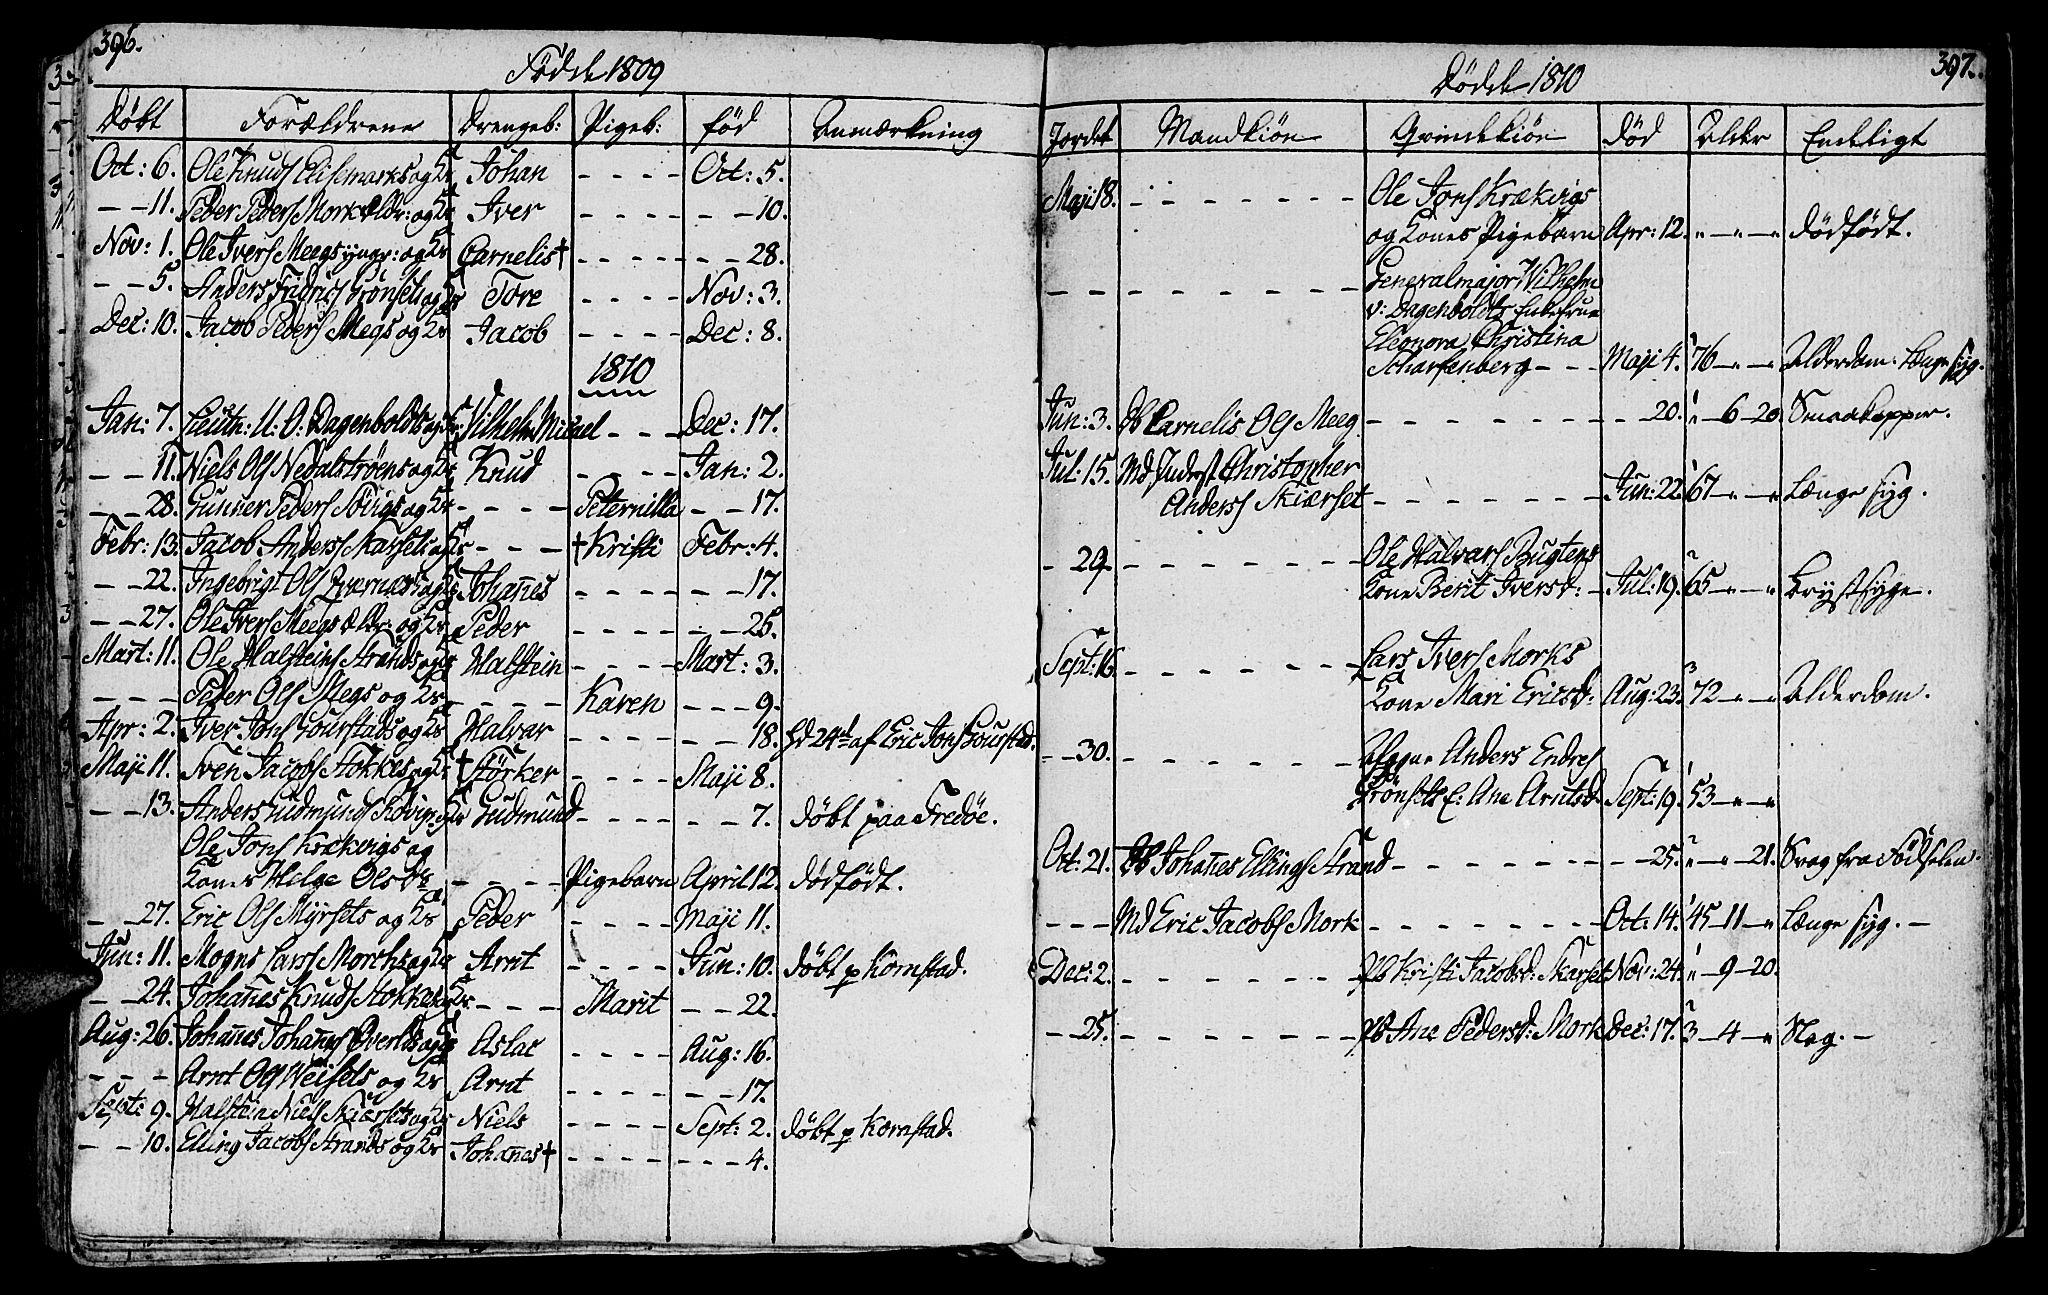 396.
Födde 1809
Döbt Forældrene Drengeb: Pigeb: föd Anmærkning
Oct: 6. Ole Knuds Elisemarks og Hr Johan - - - - Oct: 5.
- - 11. Peder Peders Mork ældr: og Hr Iver - - - - - - 10.
Nov: 1. Ole Ivers Meegs yngr: og Hr Carnelis † - - - - - - 28.
- - 5. Anders Fridrics Grönsets og Hr Tore - - - - Nov: 3.
Dec: 10. Jacob Peders Megs og Hr Jacob - - - - Dec: 8.
1810
Jan: 7. Lieutn: U: O: Dagenboldts og Fr: Vilhelm Michel - - - Dec: 17.
- - 11. Niels Ols Nedalströens og Hr Knud - - - - Jan: 2.
- - 28. Gunner Peders og Hr - - - - Peternilla - - 17.
Febr: 13. Jacob Anders Karsets og Hr - - - † Kristi Febr: 4.
- - 22. Ingebrigt Ols Qvernæs og Hr Johañes - - - - - - 17.
- - 27. Ole Ivers Meegs Ældr: og Hr Peder - - - - - - 25.
Mart: 11. Ole Halsteins Strands og Hr Halstein - - - - Mart: 3.
- - - Peder Ols Megs og Hr - - - - Karen - - - 9.
Apr: 2. Iver Jons Gourstads og Hr Halvar - - - - - - 18. hd 24de af Eric Jons Gourstad.
Maji 11. Sven Jacobs Stokkes og Hr † Störker - - - - Maji 8.
- - 13. Anders Gudmunds og Hr Gudmund - - - - - - 7. döbt paa Fredöe.
Ole Jons Krækvigs og
Kones Helge Olsdr - - - - Pigebarn April 12. dödfödt.
- - 27. Eric Ols Myrsets og Hr Peder - - - - Maji 11.
Jun: 11. Mogns Lars Morchs og Hr Arnt - - - - Jun: 10. döbt p Kornstad.
- - 24. Johañes Knuds Stokke og Hr - - - Marit - - 22.
Aug: 26. Johañes Johañes Överlds og Hr Aslac - - - - Aug: 16.
- - - Arnt Ols Weisets og Hr Arnt - - - - - - 17.
Sept: 9. Halstein Niels Skiersets og Hr Niels - - - - Sept: 2. döbt p Kornstad.
- - 10. Elling Jacobs Strands og Hr Johañes † - - - - - - - 4.
397.
Dödde 1810
Jordet Mandkiön Qvindekiön död Alder Endeligt
Maji 18. - - - - - - - Ole Jons Krækvigs
og Kones Pigebarn Apr: 12. " - " - " dödfödt.
- - - - - - - Generalmajor Wilhelm
v: Dagenboldts Enkefrue
Eleonora Christina
Scharfenberg - - - Maji 4. 76 - " - " Alderdom. Længe syg.
Jun: 3. Db Carnelis Ols Meeg. - - - - - - - - 20. " - 6 - 20. Smaakopper.
Jul: 15. Md Inderst Christopher
Anders Skiærset - - - - - - Jun: 22. 67 - " - " Længe syg.
- 29. - - - - - - Ole Halvars Bugtens
Kone Berit Iversd: - Jul: 19. 65 - " - " Brystsyge.
Sept: 16. - - - - - - Lars Ivers Morks
Kone Mari Ericsd: Aug: 23. 72 - " - " Alderdom.
- - 30. - - - - - - Afgne Anders Endres
Grönsets E: Ane Arntsd. Sept: 19. 53 - " - "
Oct: 21. Db Johañes Ellings Strand - - - - - - - - 25. " - " - 21. Svag fra Födselen.
- - - Md Eric Jacobs Mork - - - - - - Oct: 14. 45 - 11 - " Længe syg. -
Dec: 2. - - - - - - Pb Kristi Jacobsd: Karset Nov: 24. " - 9 - 20.
- - 25. - - - - - - Pb Ane Pedersd: Mork Dec: 17. 3 - 4 - " Slag. -